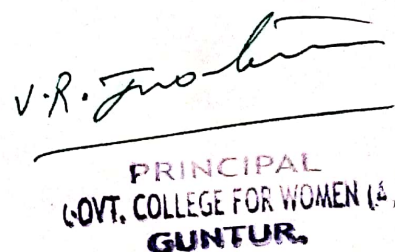 V.R.
PRINCIPAL
GOVT. COLLEGE FOR WOMEN (A,
GUNTUR.